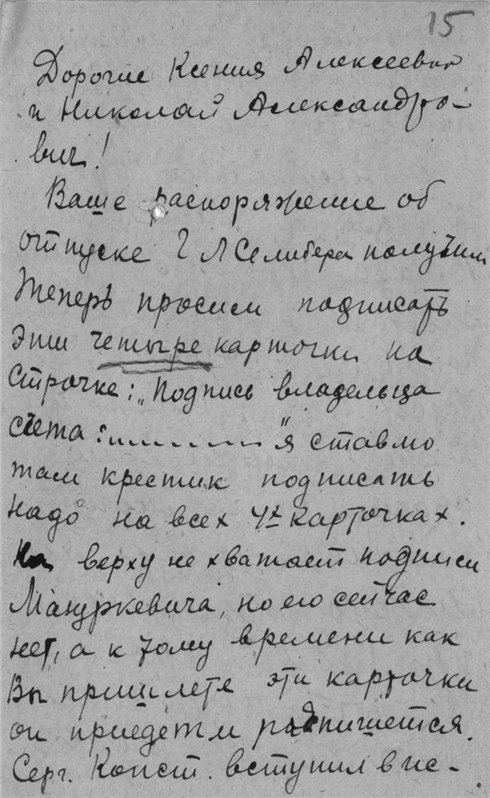 15
Дорогие Ксения Алексеевна
и Николай Александро-
вич!
Ваше распоряжение об
отпуске Г Л Селибера получили
Теперь просим подписать
эти четыре карточки на
строчке: „Подпись владельца
счета:............" я ставлю
там крестик подписать
надо на всех 4х карточках.
На верху не хватает подписи
Мазуркевича, но его сейчас
нет, а к тому времени как
Вы пришлете эти карточки
он приедет и распишется.
Серг. Конст. вступил в ис-